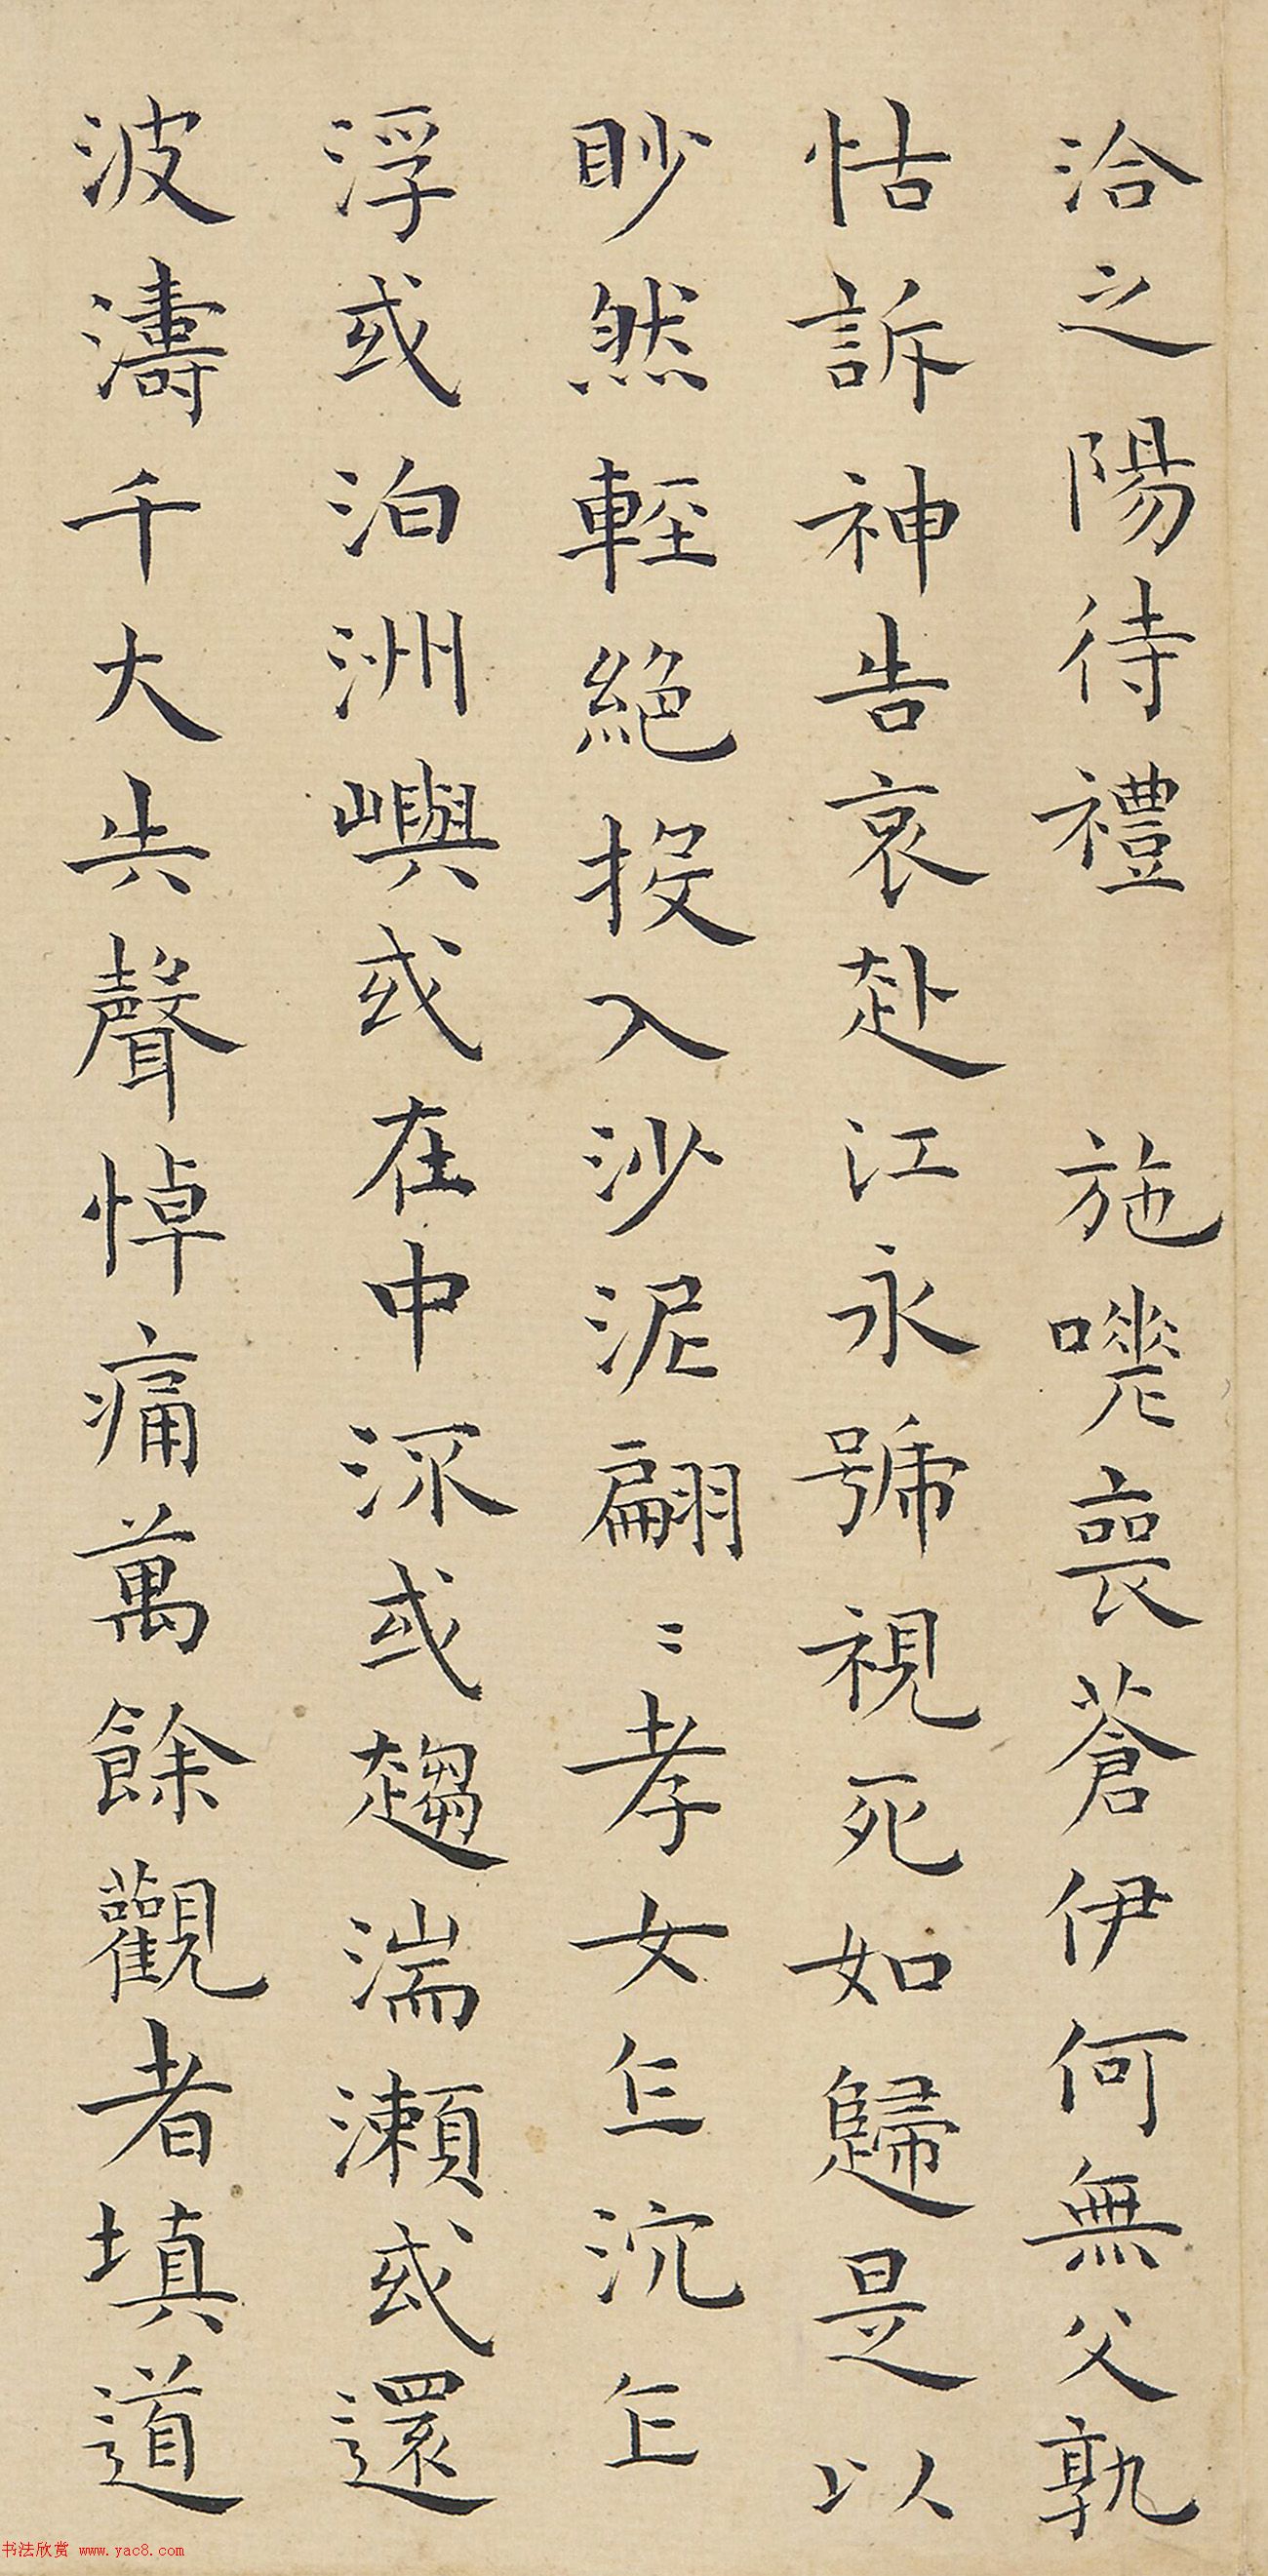 洽之陽待禮 施嗟喪蒼伊何無父孰
怙訴神告哀赴江永號視死如歸是以
眇然輕絕投入沙泥翩〻孝女乍沉乍
浮或泊洲嶼或在中流或趨湍瀨或還
波濤千夫失聲悼痛萬餘觀者填道
书法欣赏 www.yac8.com